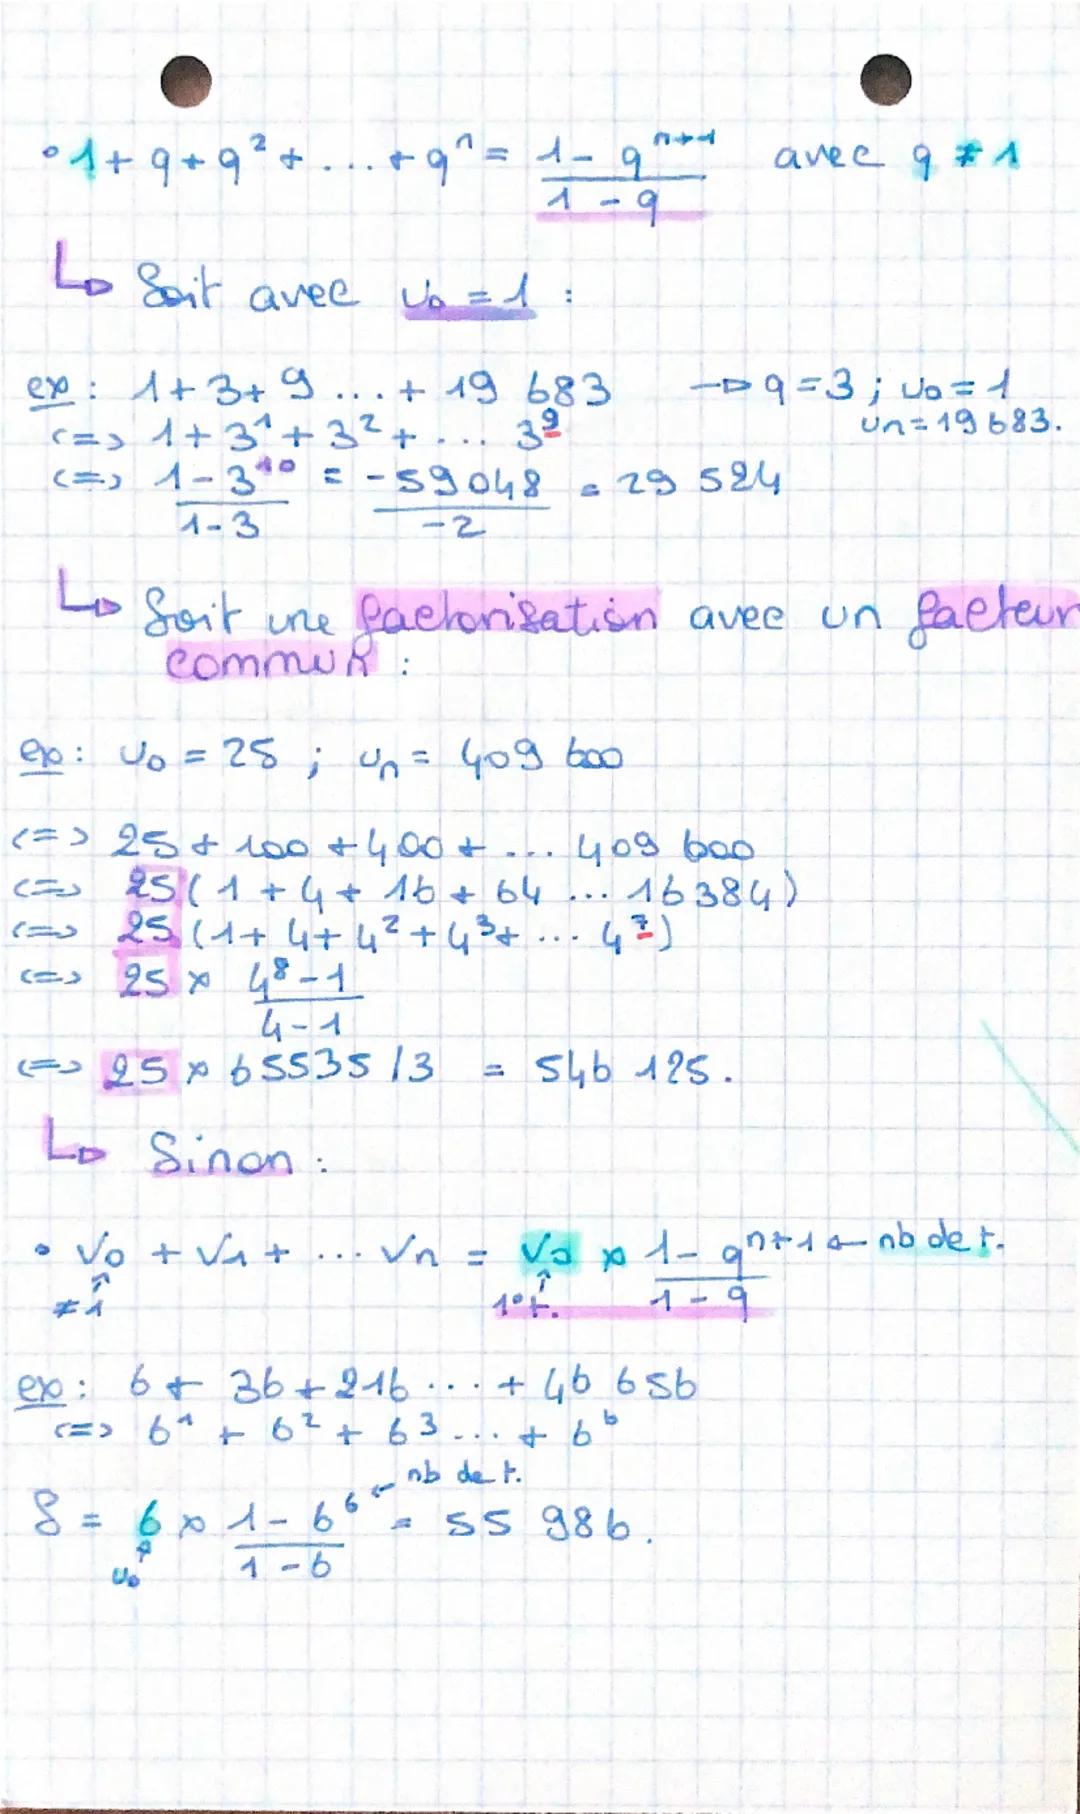 • 1 + q + q² + ... + qⁿ = (1 - qⁿ⁺¹)/(1 - q) avec q ≠ 1
↳ Soit avec u₀ = 1 :
ex : 1 + 3 + 9 ... + 19 683 → q = 3 ; u₀ = 1
un = 19 683.
<=> 1 + 3¹ + 3² + ... 3⁹
<=> (1 - 3¹⁰)/(1 - 3) = -59048/-2 = 29 524
↳ Soit une factorisation avec un facteur
commun :
ex : u₀ = 25 ; un = 409 600
<=> 25 + 100 + 400 + ... 409 600
<=> 25 (1 + 4 + 16 + 64 ... 16 384)
<=> 25 (1 + 4 + 4² + 4³ + ... 4⁷)
<=> 25 × (4⁸ - 1)/(4 - 1)
<=> 25 × 65535 / 3 = 546 125.
↳ Sinon :
• V₀ + V₁ + ... Vn = V₀ × (1 - qⁿ⁺¹)/(1 - q) ← nb de t.
↑ ≠ 1 ↑ 1° t.
ex : 6 + 36 + 216 ... + 46 656
<=> 6¹ + 6² + 6³ ... + 6⁶
← nb de t.
S = 6 × (1 - 6⁶)/(1 - 6) = 55 986.
↑ u₀